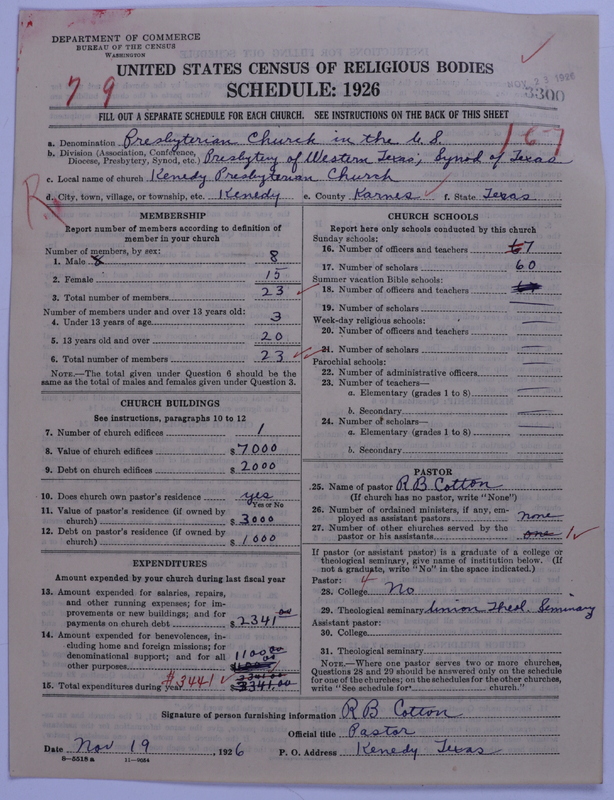 DEPARTMENT OF COMMERCE
BUREAU OF THE CENSUS
WASHINGTON
UNITED STATES CENSUS OF RELIGIOUS BODIES
SCHEDULE: 1926
7 9
NOV 23 1926
3300
FILL OUT A SEPARATE SCHEDULE FOR EACH CHURCH. SEE INSTRUCTIONS ON THE BACK OF THIS SHEET
167
a. Denomination Presbyterian Church in the U.S.
b. Division (Association, Conference, Diocese, Presbytery, Synod, etc.) Presbytery of Western Texas; Synod of Texas
c. Local name of church Kenedy Presbyterian Church
d. City, town, village, or township, etc. Kenedy e. County Karnes f. State Texas
MEMBERSHIP
Report number of members according to definition of
member in your church
Number of members, by sex:
1. Male 8
2. Female 15
3. Total number of members 23
Number of members under and over 13 years old:
4. Under 13 years of age 3
5. 13 years old and over 20
6. Total number of members 23
NOTE.—The total given under Question 6 should be the
same as the total of males and females given under Question 3.
CHURCH BUILDINGS
See instructions, paragraphs 10 to 12
7. Number of church edifices 1
8. Value of church edifices $7000
9. Debt on church edifices $2000
10. Does church own pastor's residence yes
Yes or No
11. Value of pastor's residence (if owned by
church) $3000
12. Debt on pastor's residence (if owned by
church) $1000
EXPENDITURES
Amount expended by church during last fiscal year
13. Amount expended for salaries, repairs,
and other running expenses; for im-
provements or new buildings; and for
payments on church debt $2341.00
14. Amount expended for benevolences, in-
cluding home and foreign missions; for
denominational support; and for all
other purposes 1100.00
15. Total expenditures during year $3441 3341.00
CHURCH SCHOOLS
Report here only schools conducted by this church
Sunday schools:
16. Number of officers and teachers 7
17. Number of scholars 60
Summer vacation Bible schools:
18. Number of officers and teachers
19. Number of scholars
Week-day religious schools:
20. Number of officers and teachers
21. Number of scholars
Parochial schools:
22. Number of administrative officers
23. Number of teachers—
a. Elementary (grades 1 to 8)
b. Secondary
24. Number of scholars—
a. Elementary (grades 1 to 8)
b. Secondary
PASTOR
25. Name of pastor R B Cotton
(If church has no pastor, write "None")
26. Number of ordained ministers, if any, em-
ployed as assistant pastors none
27. Number of other churches served by the
pastor or his assistants one 1
If pastor (or assistant pastor) is a graduate of a college or
theological seminary, give name of institution below. (If
not a graduate, write "No" in the space indicated.)
Pastor: 4
28. College No
29. Theological seminary Union Theol. Seminary
Assistant pastor:
30. College
31. Theological seminary
NOTE.—Where one pastor serves two or more churches,
Questions 28 and 29 should be answered only on the schedule
for one of the churches; on the schedules for the other churches,
write "See schedule for church."
Signature of person furnishing information R B Cotton
Official title Pastor
Date Nov 19, 1926 P. O. Address Kenedy Texas
8—5518 a 11—9054